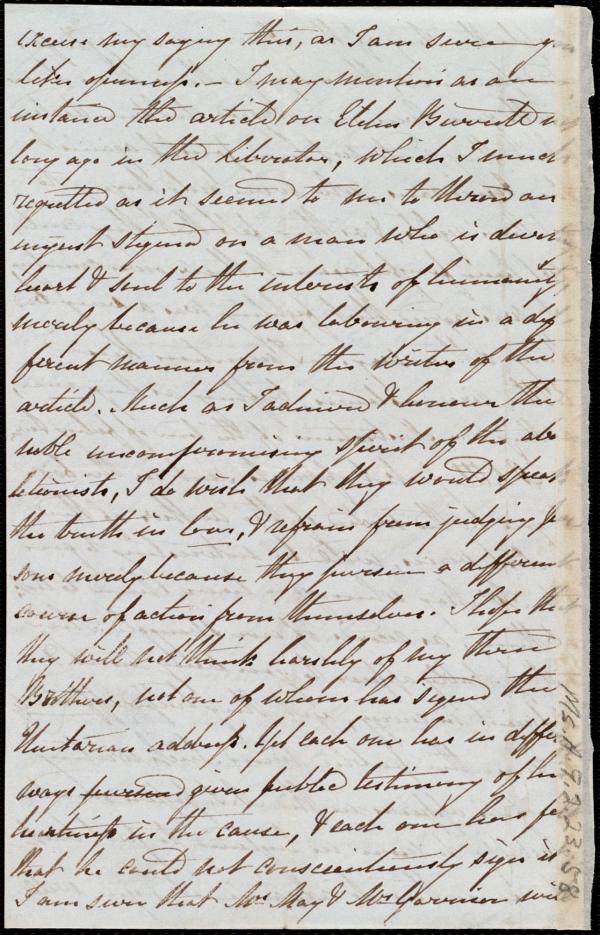 excuse my saying this, as I am sure you
like openness. — I may mention as an
instance the article on Elihu Burritt n
long ago in the Liberator, which I much
regretted as it seemed to me to throw an
unjust stigma on a man who is devo
heart & soul to the interests of humanity
merely because he was labouring in a dif
ferent manner from the writer of the
article. Much as I admire & honour the
noble uncompromising spirit of the abo
litionists, I do wish that they would speak
the truth in love, & refrain from judging per
sons merely because they pursue a different
course of action from themselves. I hope that
they will not think harshly of my three
Brothers, not one of whom has signed the
Unitarian address. Yet each one has in differ
ways pursued given public testimony of his
heartiness in the cause, & each one has fe
that he could not conscientiously sign it
I am sure that Mr. May & Mr. Garrison will
Ms. A. 9. 2. 23. 58